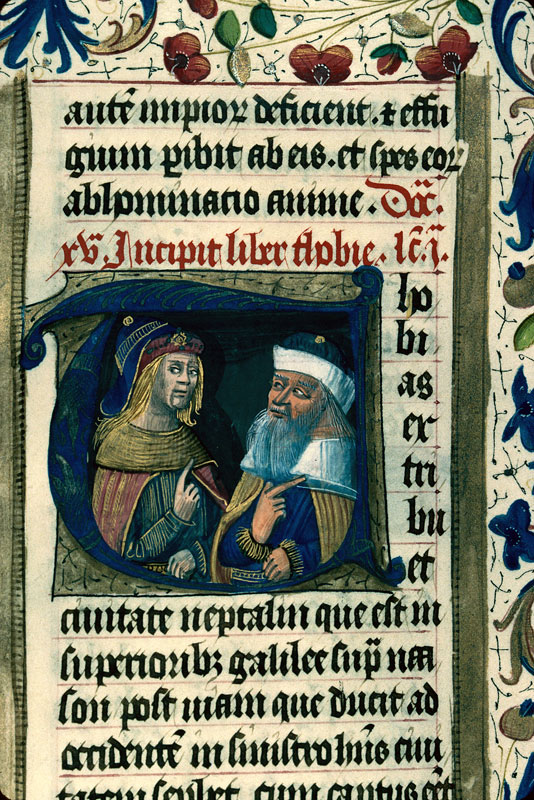 autē impior deficient. et effu
gium ꝑibit ab eis. et spes eoꝝ
abhominacio anime. Dñc̄.
xv. Incipit liber thobie. ic̄. i.
Tho
bi
as
ex
tri
bu
et
ciuitate neptalin que est in
superioribꝫ galilee sup̄ naa
son post uiam que ducit ad
occidentē in sinistro hn̄s ciui
tatem sephet. cum captus eēt